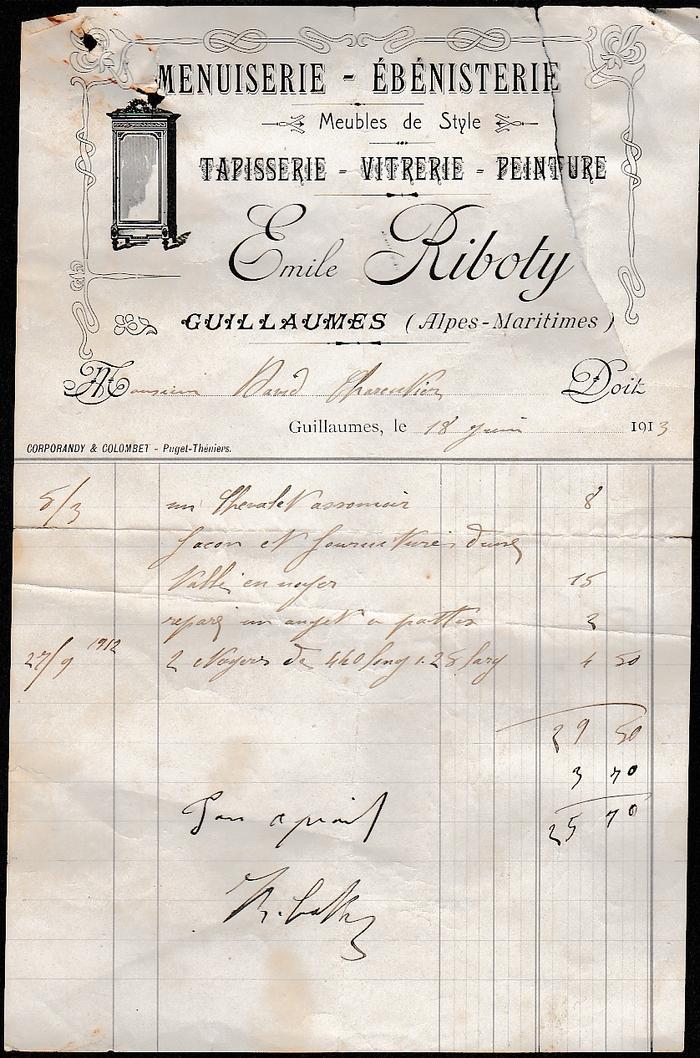 MENUISERIE - ÉBÉNISTERIE
Meubles de Style
TAPISSERIE - VITRERIE - PEINTURE
Emile Riboty
GUILLAUMES (Alpes-Maritimes)
Monsieur David Charentier Doit
Guillaumes, le 18 juin 1913
CORPORANDY & COLOMBET - Puget-Théniers.
5/3 un 8
facon et fourniture d'une
en noyer 15
reparé un a pattes 2
27/9 1912 2 Noyers de 440 long 1.25 larg 4 50
29 50
3 70
25 70
Pour
Riboty